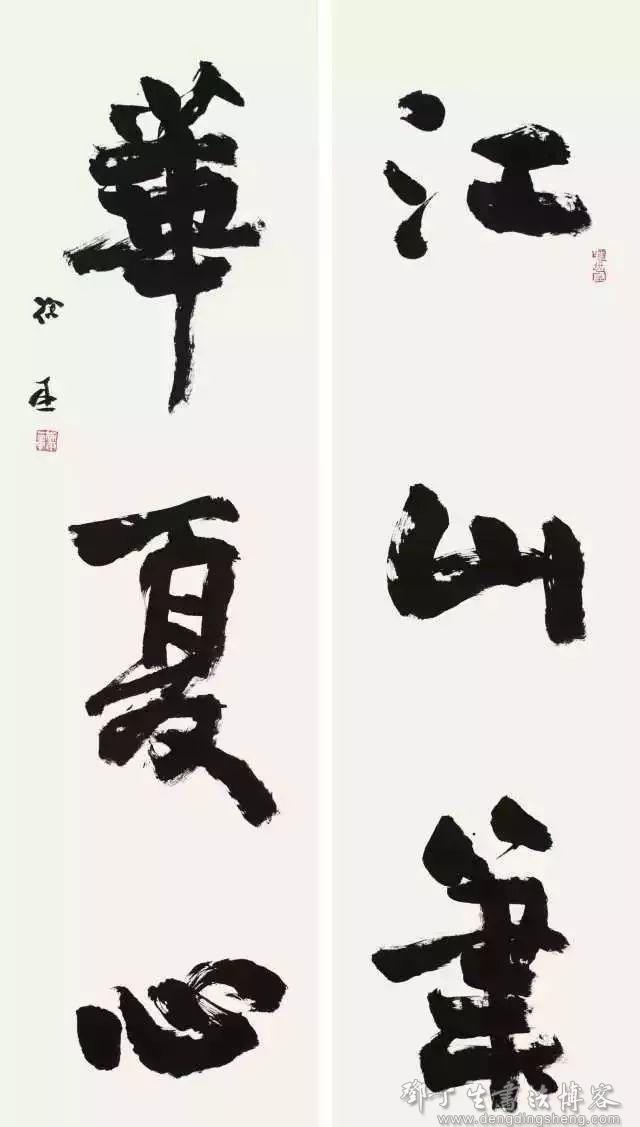 江山筆
華夏心
徐
鄧丁生書法博客
www.dengdingsheng.com